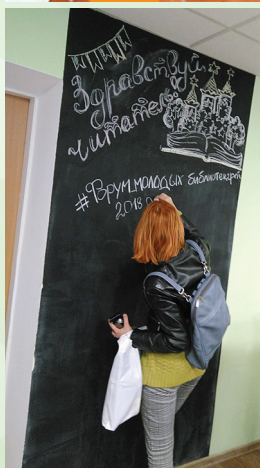 Здравствуй
читатель
#Фрум_молодых библиотекарей
2018